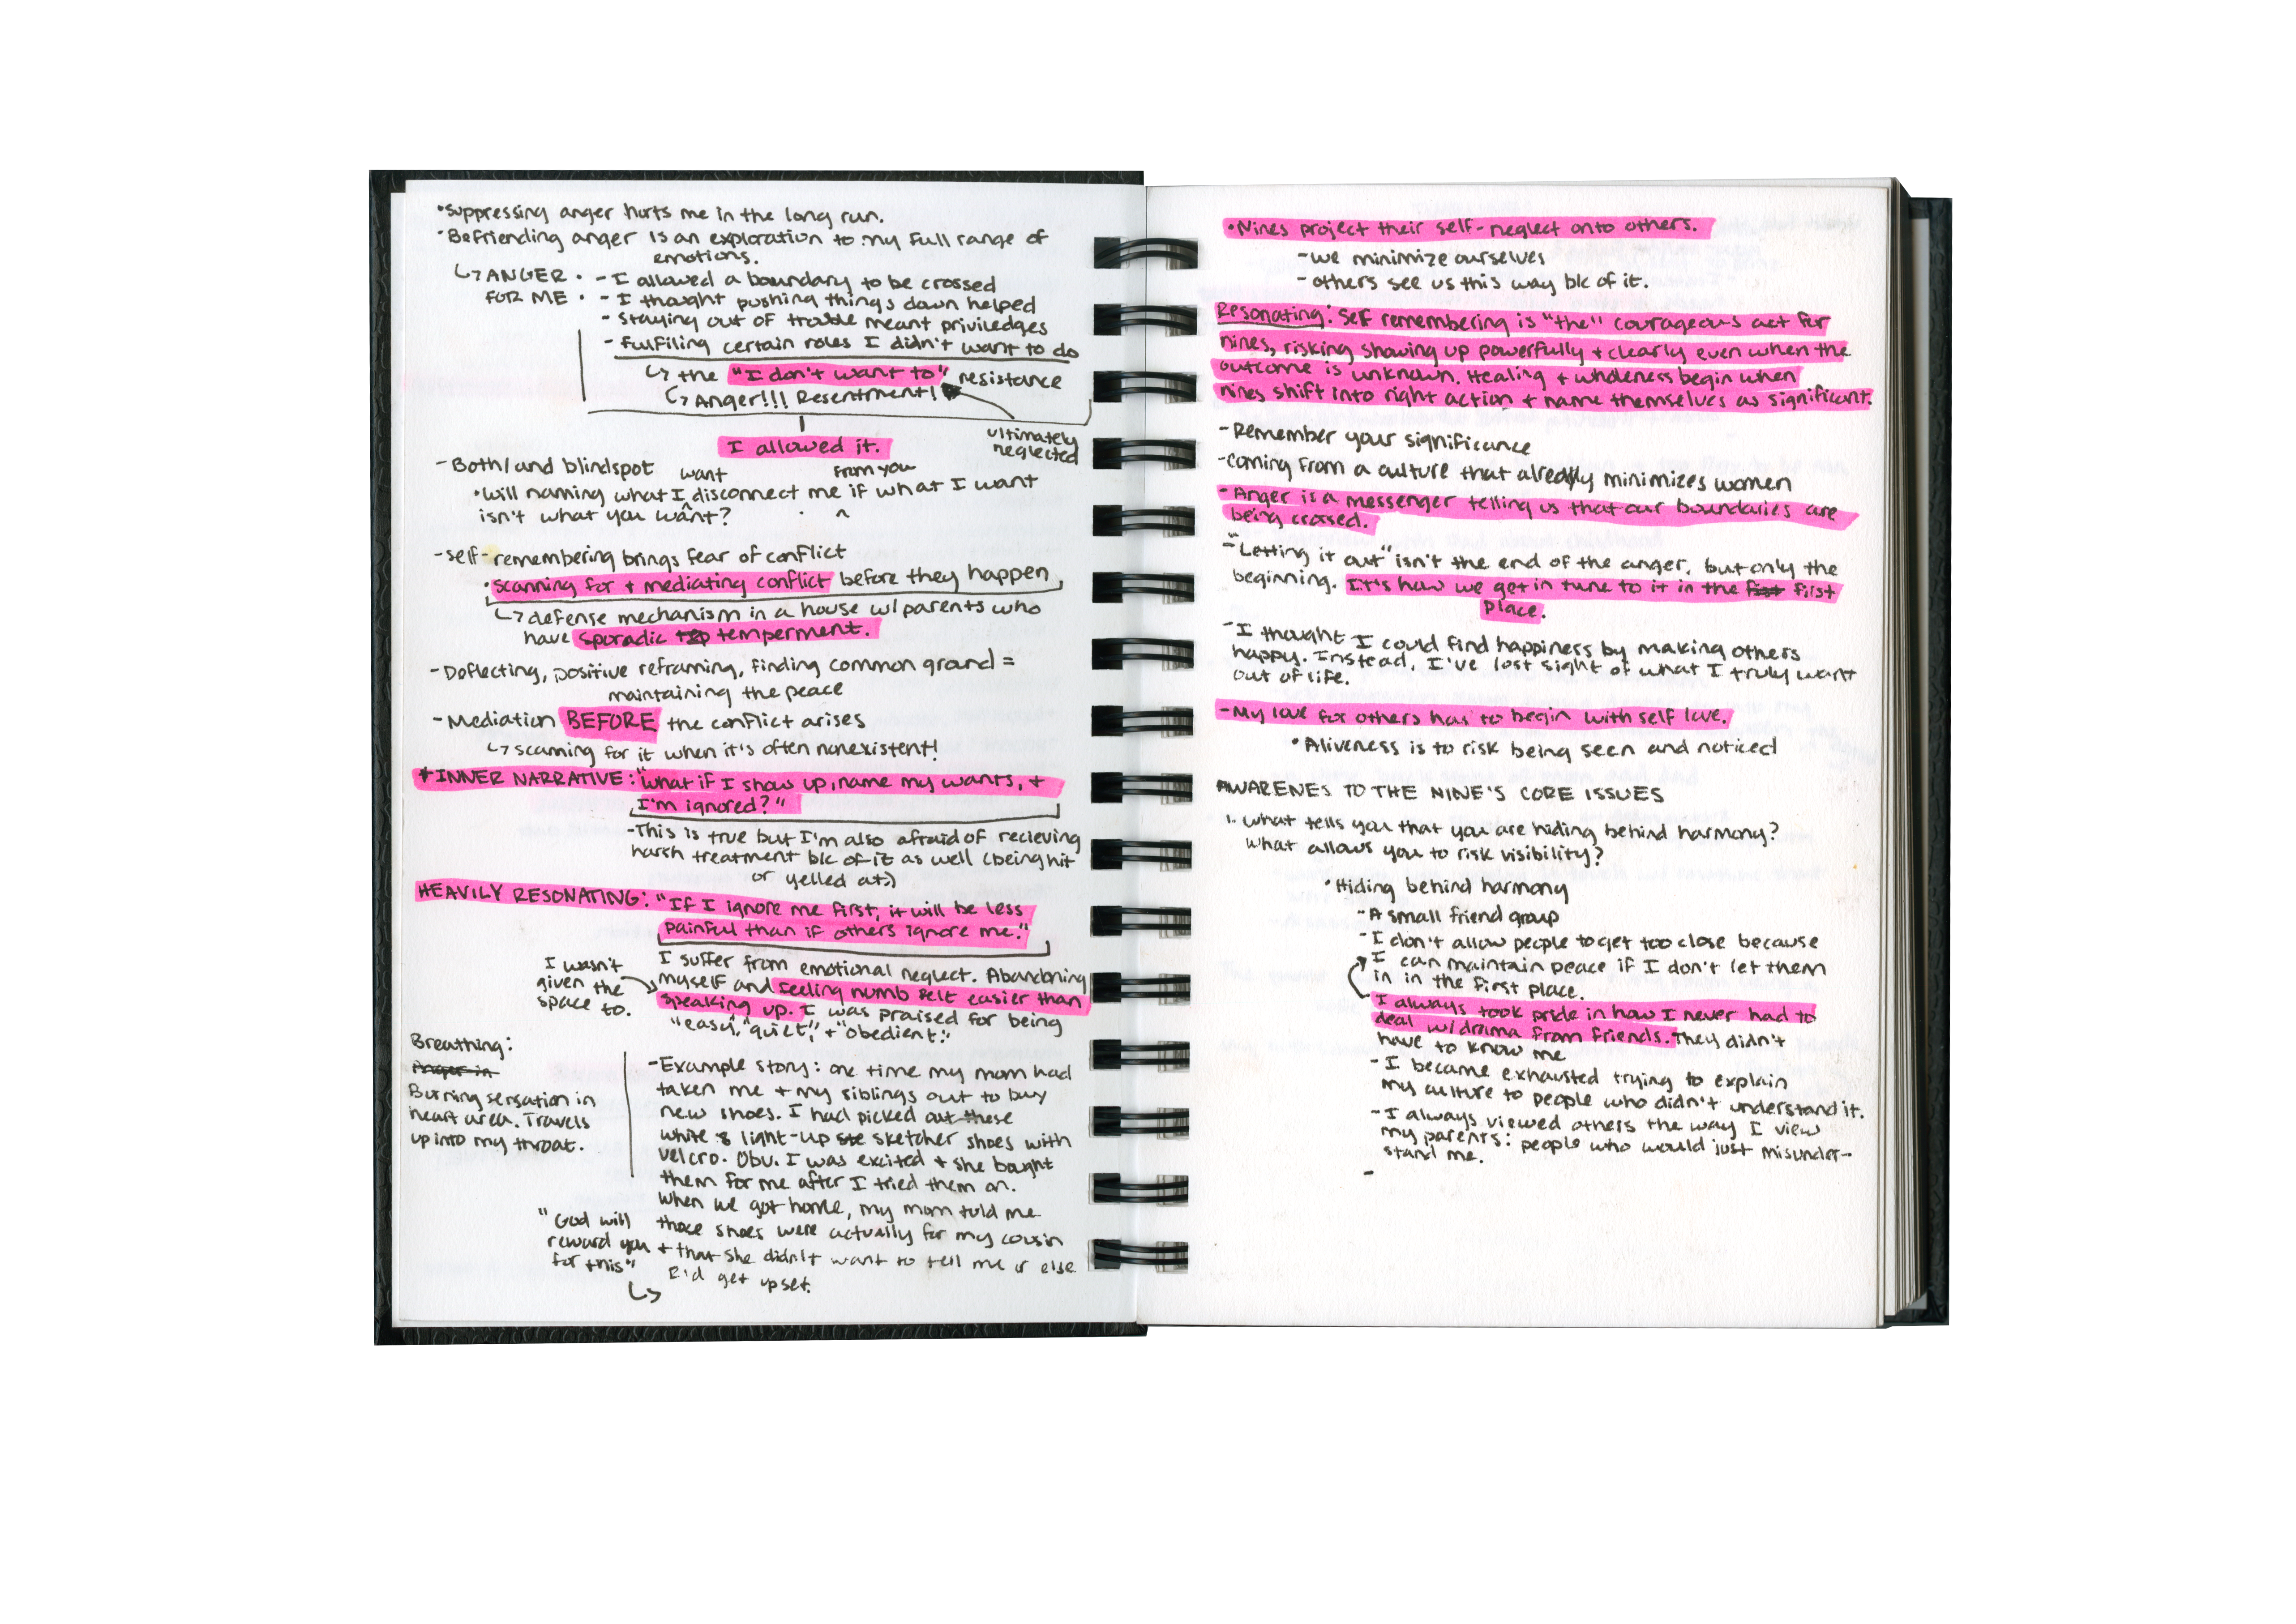 •Suppressing anger hurts me in the long run.
•Befriending anger is an exploration to my full range of
emotions.
↳ANGER • - I allowed a boundary to be crossed
FOR ME • - I thought pushing things down helped
- Staying out of trouble meant priviledges
- Fulfiling certain roles I didn't want to do
↳ the "I don't want to" resistance
↳ Anger!!! Resentment!
ultimately
neglected
I allowed it.
- Both/and blindspot
want
from you
•Will naming what I disconnect me if what I want
isn't what you want?
- Self-remembering brings fear of conflict
•Scanning for + mediating conflict before they happen
↳ defense mechanism in a house w/parents who
have sporadic temperment.
- Deflecting, positive reframing, finding common ground =
maintaining the peace
- Mediation BEFORE the conflict arises
↳ scanning for it when it's often nonexistent!
*INNER NARRATIVE: "What if I show up, name my wants, +
I'm ignored?"
-This is true but I'm also afraid of recieving
harsh treatment b/c of it as well (being hit
or yelled at.)
HEAVILY RESONATING: "If I ignore me first, it will be less
painful than if others ignore me."
I wasn't
given the
space to.
I suffer from emotional neglect. Abandoning
myself and feeling numb felt easier than
speaking up. I was praised for being
"easy," "quiet," + "obedient."
Breathing:
Anger in
Burning sensation in
heart area. Travels
up into my throat.
-Example story: one time my mom had
taken me + my siblings out to buy
new shoes. I had picked out these
white light-up sketcher shoes with
velcro. Obv. I was excited + she bought
them for me after I tried them on.
When we got home, my mom told me
those shoes were actually for my cousin
+ that she didn't want to tell me or else
I'd get upset.
"God will
reward you
for this"
↳
•Nines project their self-neglect onto others.
-we minimize ourselves
- others see us this way b/c of it.
Resonating: Self remembering is "the" courageous act for
nines, risking showing up powerfully + clearly even when the
outcome is unknown. Healing + wholeness begin when
nines shift into right action + name themselves as significant.
-Remember your significance
-Coming from a culture that already minimizes women
-Anger is a messenger telling us that our boundaries are
being crossed.
-"Letting it out" isn't the end of the anger, but only the
beginning. It's how we get in tune to it in the first first
place.
-I thought I could find happiness by making others
happy. Instead, I've lost sight of what I truly want
out of life.
-My love for others has to begin with self love.
•Aliveness is to risk being seen and noticed
AWARENES TO THE NINE'S CORE ISSUES
1. What tells you that you are hiding behind harmony?
What allows you to risk visibility?
•Hiding behind harmony
-A small friend group
-I don't allow people to get too close because
I can maintain peace if I don't let them
in in the first place.
-I always took pride in how I never had to
deal w/drama from friends. They didn't
have to know me
-I became exhausted trying to explain
my culture to people who didn't understand it.
-I always viewed others the way I view
my parents: people who would just misunder-
stand me.
-